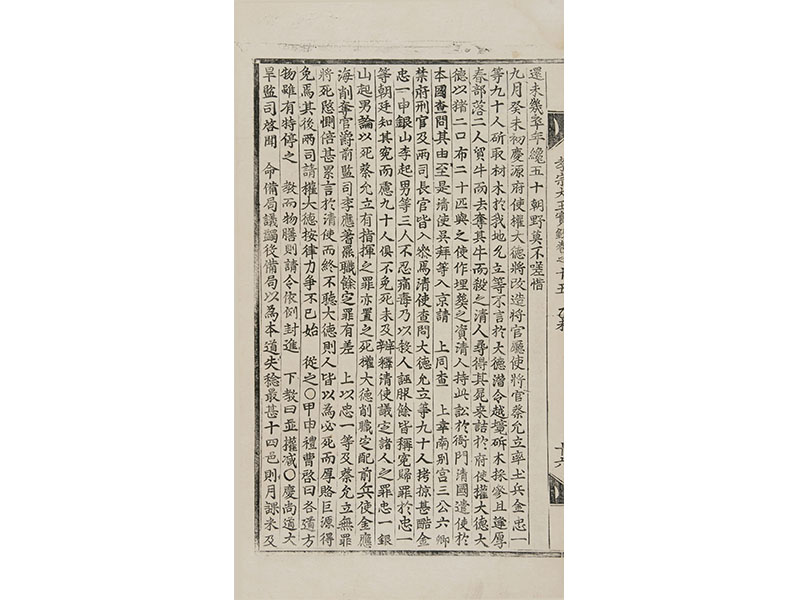 孝宗大王實錄卷之十五 乙未 十六
還未幾卒年纔五十朝野莫不嗟惜
九月癸未初慶源府使權大德將改造將官廳使將官蔡允立率土兵金忠一
等九十人斫取材木於我地允立等不言於大德潛令越境斫木採參且逢厚
春部落二人貿牛而去奪其牛而殺之清人尋得其屍來詰於府使權大德大
德以猪二口布二十匹與之使作埋葬之資清人持此訟於衙門清國遣使於
本國查問其由至是清使吳拜等入京請 上同查 上幸南別宮三公六卿
禁府刑官及兩司長官皆入參焉清使查問大德允立等九十人拷掠甚酷金
忠一申銀山李起男等三人不忍痛毒乃以殺人誣服餘皆稱冤歸罪於忠一
等朝廷知其冤而慮九十人俱不免死未及辨釋清使議定諸人之罪忠一銀
山起男論以死蔡允立有指揮之罪亦置之死權大德削職定配前兵使金應
海削奪官爵前監司李應蓍罷職餘定罪有差 上以忠一等及蔡允立無罪
將死愍惻倍甚累言於清使而終不聽大德則人皆以爲必死而厚賂巨源得
免焉其後兩司請權大德按律力爭不已始 從之○甲申禮曹啓曰各道方
物雖有特停之 敎而物膳則請令依例封進 下敎曰並權減○慶尚道大
旱監司啓聞 命備局議蠲役備局以爲本道失稔最甚十四邑則月課米及